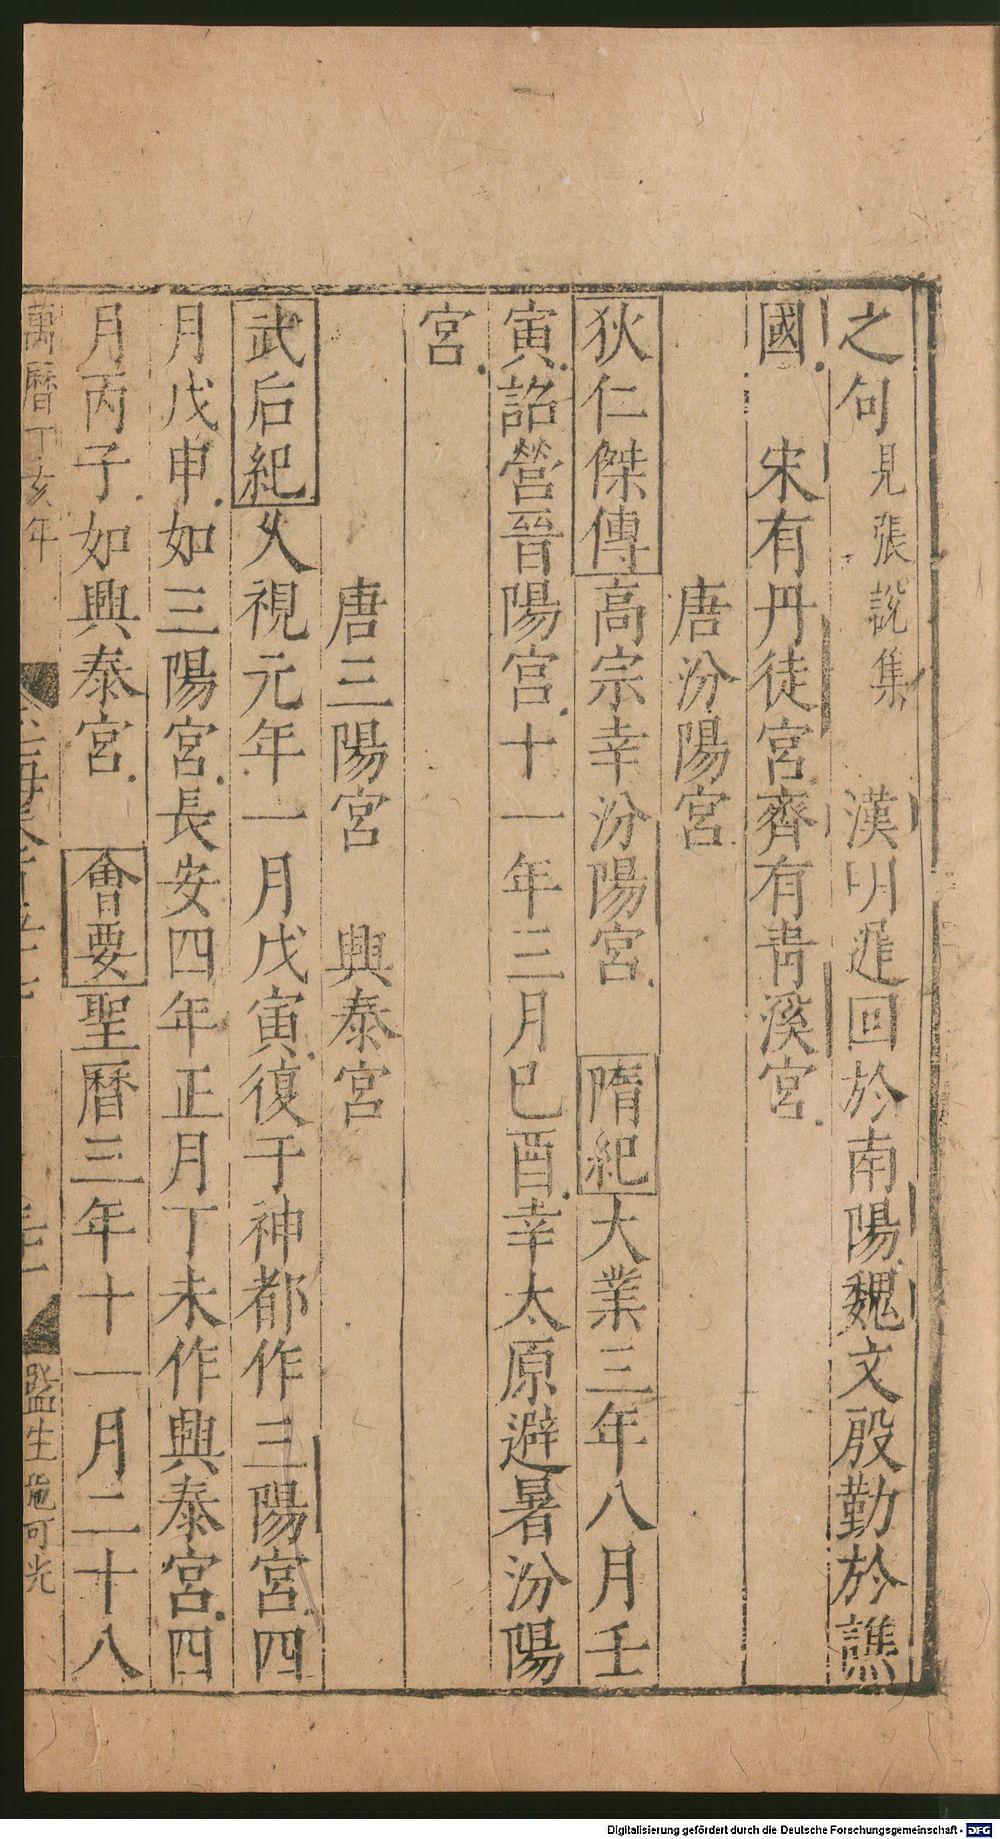 之句見張說集　漢明遲回於南陽魏文殷勤於譙
國　宋有丹徒宮齊有青溪宮
唐汾陽宮
狄仁傑傳高宗幸汾陽宮　隋紀大業三年八月壬
寅詔營晉陽宮十一年三月己酉幸太原避暑汾陽
宮
唐三陽宮　興泰宮
武后紀久視元年一月戊寅復于神都作三陽宮四
月戊申如三陽宮長安四年正月丁未作興泰宮四
月丙子如興泰宮　會要聖曆三年十一月二十八
萬曆丁亥年
監生施可光
Digitalisierung gefördert durch die Deutsche Forschungsgemeinschaft - DFG